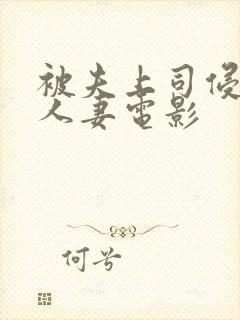 被夫上司侵
人妻电影
何兮